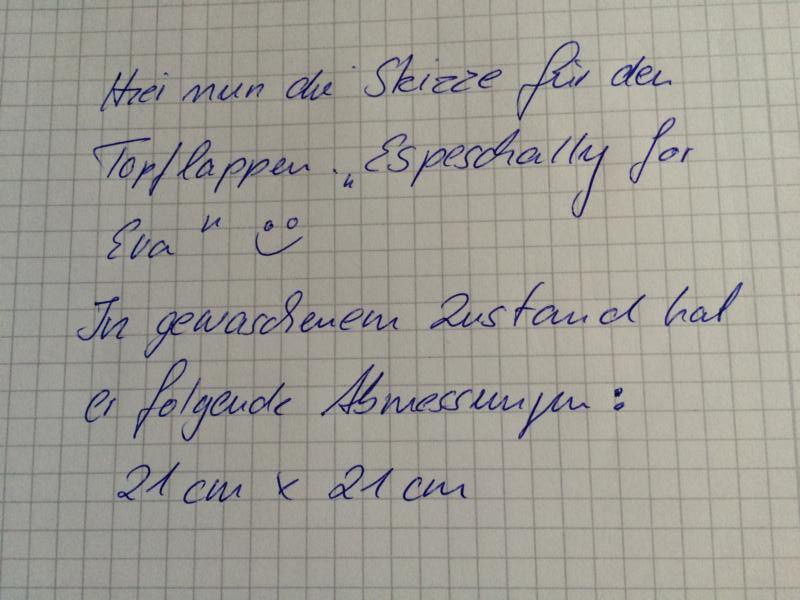 Hier nun die Skizze für den
Topflappen. „Espeschally for
Eva" ☺
In gewaschenem Zustand hat
er folgende Abmessungen:
21 cm x 21 cm